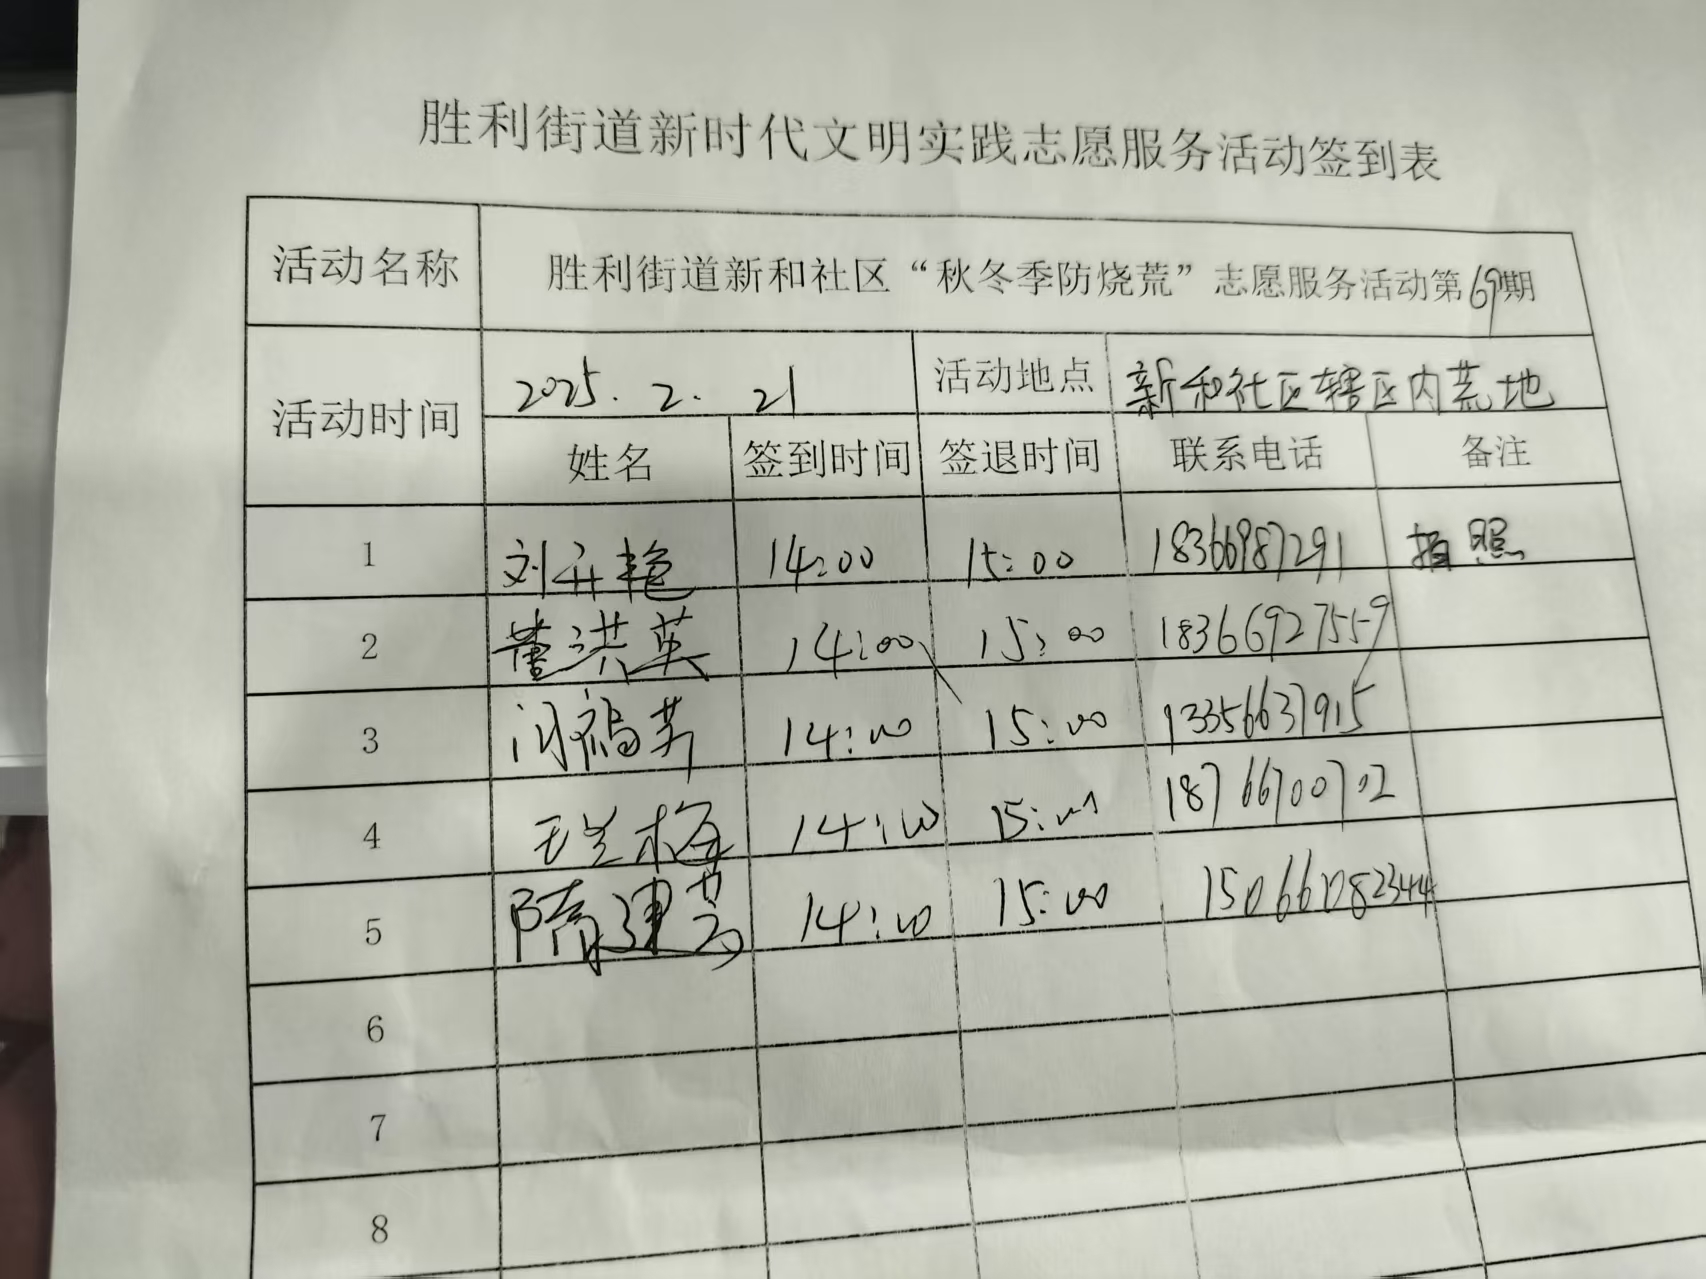 胜利街道新时代文明实践志愿服务活动签到表
活动名称 胜利街道新和社区“秋冬季防烧荒”志愿服务活动第69期
活动时间 2025.2.21 活动地点 新和社区辖区内荒地
姓名 签到时间 签退时间 联系电话 备注
1 刘升艳 14:00 15:00 18366987291 拍照
2 董洪英 14:00 15:00 18366927559
3 闫福英 14:00 15:00 13356637915
4 王兰梅 14:00 15:00 18766700702
5 隋建芸 14:00 15:00 15066082344
6
7
8